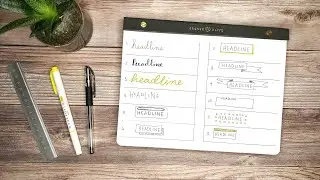 headline
headline
headline
HEADLINE
HEADLINE
HEADLINE
HEADLINE
HEADLINE
HEADLINE
HEADLINE
HEADLINE
HEADLINE